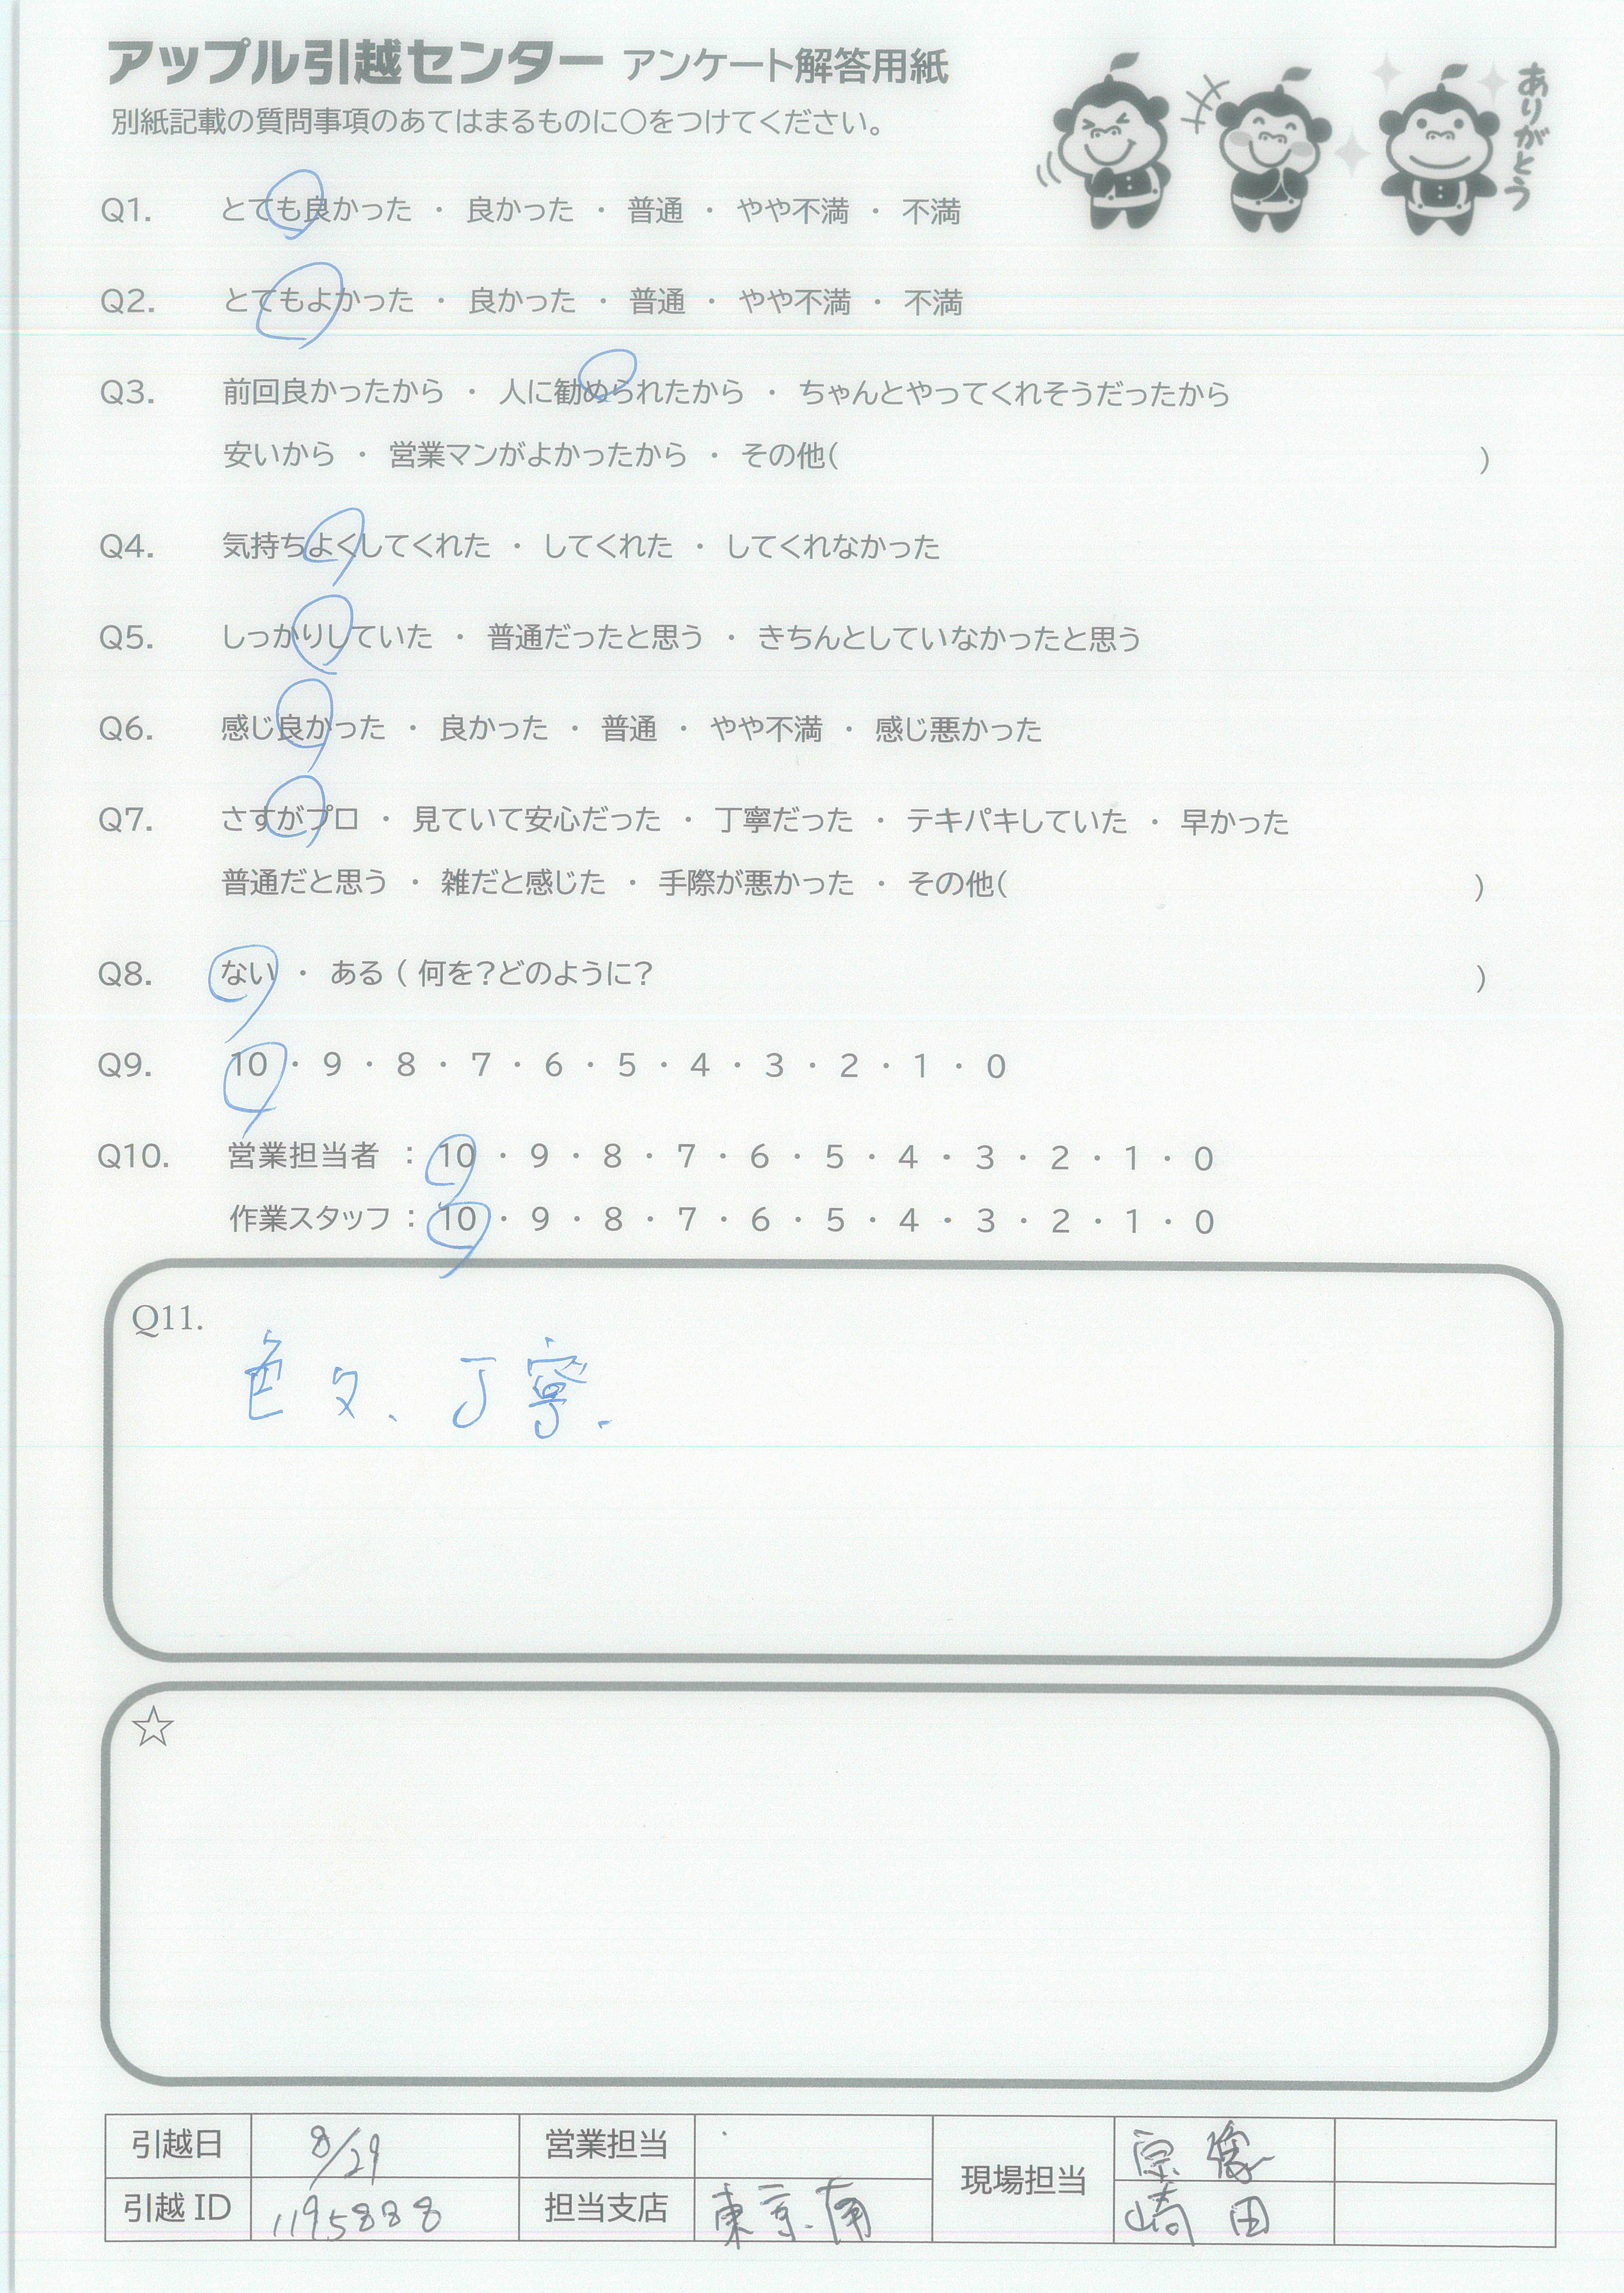 アップル引越センター アンケート解答用紙
別紙記載の質問事項のあてはまるものに○をつけてください。
ありがとう
Q1. とても良かった ・ 良かった ・ 普通 ・ やや不満 ・ 不満
Q2. とてもよかった ・ 良かった ・ 普通 ・ やや不満 ・ 不満
Q3. 前回良かったから ・ 人に勧められたから ・ ちゃんとやってくれそうだったから
安いから ・ 営業マンがよかったから ・ その他( )
Q4. 気持ちよくしてくれた ・ してくれた ・ してくれなかった
Q5. しっかりしていた ・ 普通だったと思う ・ きちんとしていなかったと思う
Q6. 感じ良かった ・ 良かった ・ 普通 ・ やや不満 ・ 感じ悪かった
Q7. さすがプロ ・ 見ていて安心だった ・ 丁寧だった ・ テキパキしていた ・ 早かった
普通だと思う ・ 雑だと感じた ・ 手際が悪かった ・ その他( )
Q8. ない ・ ある ( 何を?どのように? )
Q9. 10 ・ 9 ・ 8 ・ 7 ・ 6 ・ 5 ・ 4 ・ 3 ・ 2 ・ 1 ・ 0
Q10. 営業担当者 : 10 ・ 9 ・ 8 ・ 7 ・ 6 ・ 5 ・ 4 ・ 3 ・ 2 ・ 1 ・ 0
作業スタッフ : 10 ・ 9 ・ 8 ・ 7 ・ 6 ・ 5 ・ 4 ・ 3 ・ 2 ・ 1 ・ 0
Q11.
色々、丁寧.
☆
引越日 8/29 営業担当 現場担当
引越 ID 1195888 担当支店 東京.南 崎田